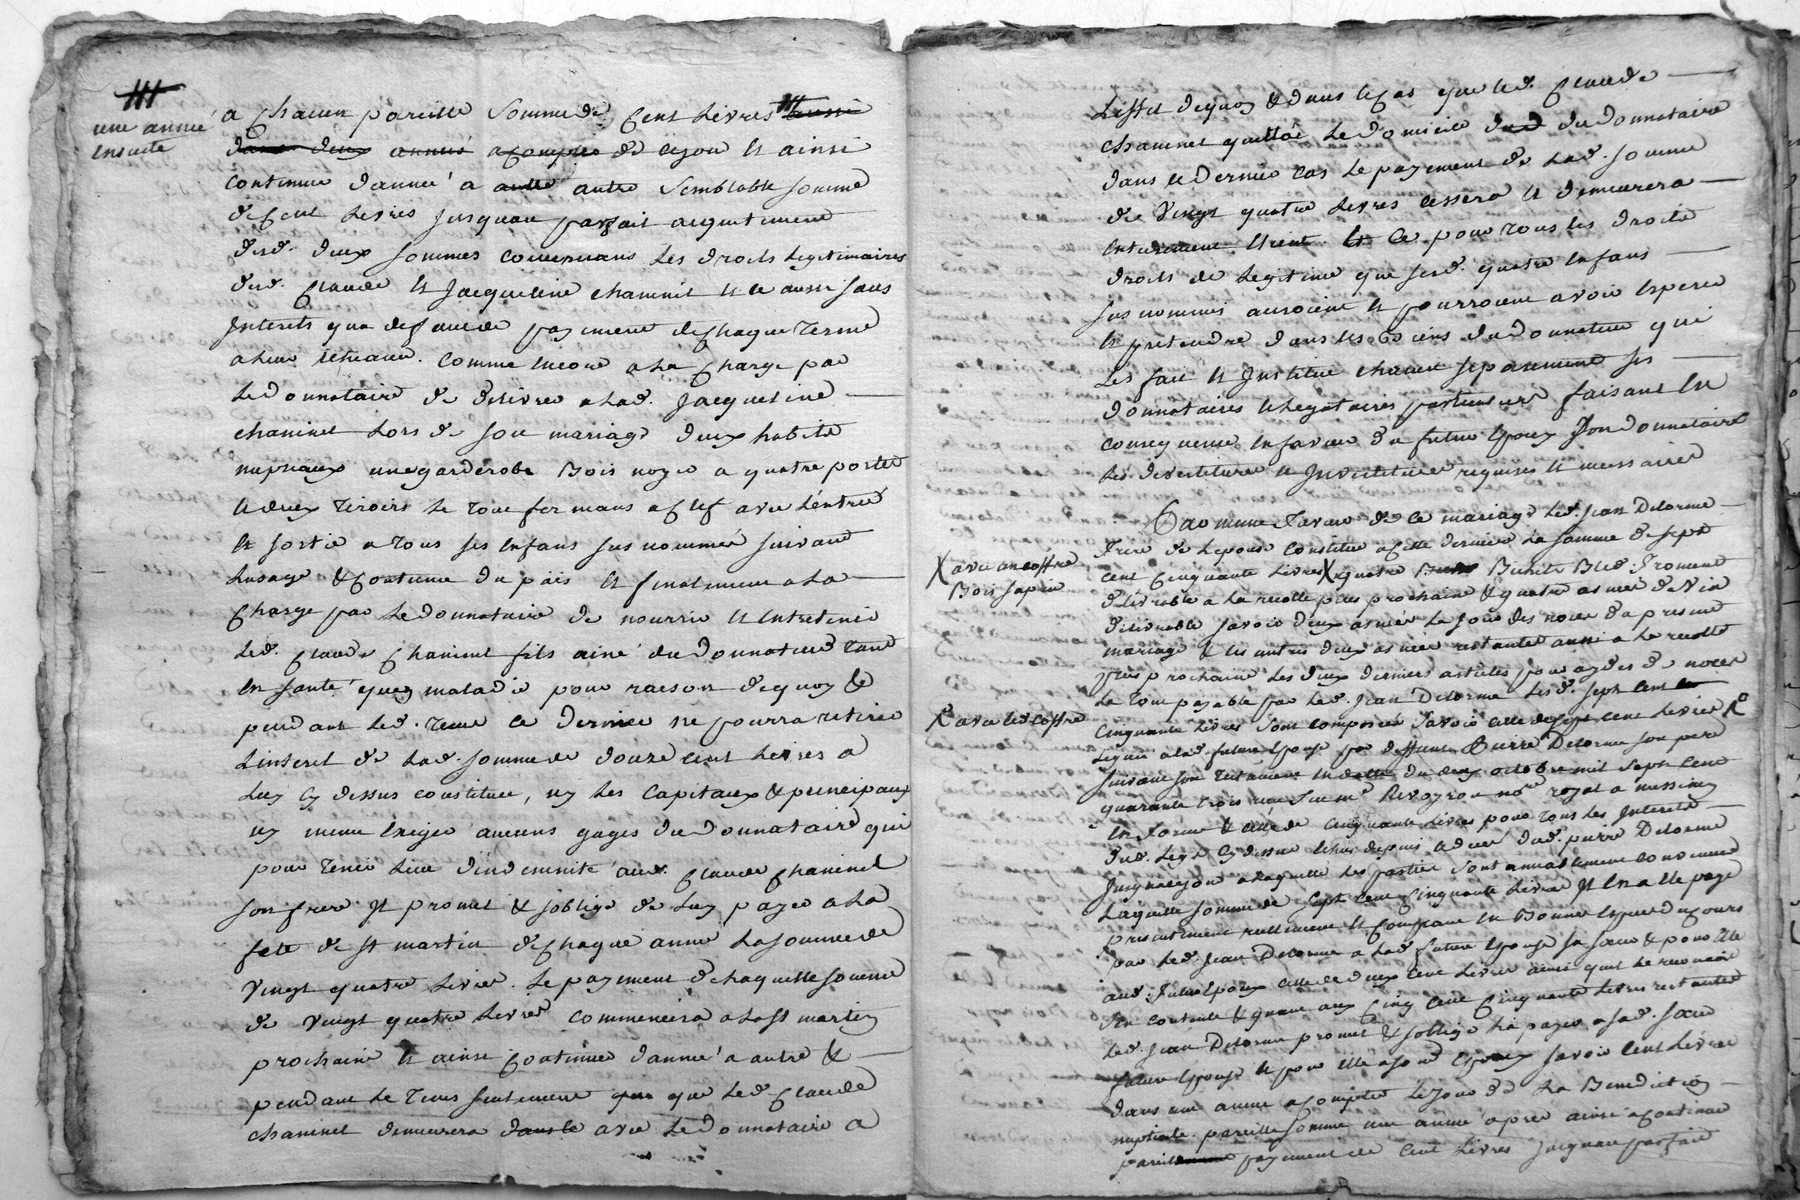 une année
ensuite
a chacun pareille somme de cent livres aussi
dans deux années acompter de cejour et ainsi
continuer dannée a autre autre semblable somme
de cent livres jusquau parfait acquitement
desd. deux sommes concernans les droits legitimaires
desd. Claude et Jacqueline chaminet et ce aussi sans
interets qua deffaut de payement de chaque terme
a leur echeance. comme encore a la charge par
le donnataire de delivrer a lad. Jacqueline
chaminet lors de son mariage deux habits
nuptiaux une garderobe bois noyer a quatre portes
et deux tiroirs le tout fermans a clef avec l'entrée
et sortie a tous ses enfans sus nommés suivant
lusage et coutume du païs et finalement a la
charge par le donnataire de nourrir et entretenir
led. Claude Chaminet fils ainé du donnateur tant
en santé quen maladie pour raison de quoy et
pendant led. tems ce dernier ne pourra retirer
linteret de lad. somme de douze cent livres a
luy cy dessus constituée, ny les capitaux et principaux
ny meme exiger aucuns gages du donnataire qui
pour tenir lieu d'indemnité aud. Claude Chaminet
son frere jl promet et soblige de luy payer a la
fete de st martin de chaque année la somme de
vingt quatre livres. le payement de laquelle somme
de vingt quatre livres commencera a la st martin
prochaine et ainsi continuer dannée a autre et
pendant le tems seulement que que led. Claude
chaminet demeurera dans le avec le donnataire a
Leffet dequoy et dans le cas que led. Claude
chaminet quittat le domicile dud. du donnataire
dans ce dernier cas le payement de lad. somme
de vingt quatre livres cessera et demeurera
entierement eteint. et ce pour tous les droits
droits de legitime que sesd. quatre enfans
sus nommés auroient et pourroient avoir esperer
et pretendre dans les biens du donnateur qui
les fait et institue chacun separement ses
donnataires et legataires particuliers faisant en
consequence en faveur du futur epoux son donnataire
les devestitures et investitures requises et necessaires
En meme faveur de ce mariage led. Jean Delorme
frere de lepouse constitue a cette derniere la somme de sept
X avec un coffre
Bois sapin
cent cinquante livres X quatre Bichets Bled froment
delivrable a la recolte plus prochaine et quatre asnées de vin
delivrable savoir deux asnées le jour des noces du present
mariage et les autres deux asnées restantes aussi a la recolte
plus prochaine les deux derniers articles pour aydes de noces
le tout payable par led. Jean Delorme lesd. sept cent
avec led. coffre
cinquante livres sont composées savoir celle de sept cent livres
leguée a lad. future epouse par deffunt Pierre Delorme son pere
suivant son testament en datte du deux octobre mil sept cent
quarante trois reçu par me Revoyron nore royal a messimy
en forme et celle de cinquante livres pour tous les interets
dud. legs cy dessus echus depuis le deces dud. pierre Delorme
jusqu'a cejour a laquelle les parties sont amiablement convenues
laquelle somme de sept cent cinquante livres jl en a ete payé
presentement reellement et comptant en bonnes especes du cours
par led. Jean Delorme a lad. future epouse sa sœur et pour elle
aud. futur epoux celle de deux cent livres ainsi quil le reconnoit
s'en contente et quant aux cinq cent cinquante livres restantes
led. Jean Delorme promet et soblige les payer a sad. sœur
future epouse et pour elle a sond. epoux savoir cent livres
dans une année a compter du jour de la Benediction
nuptiale. pareille somme une année apres ainsi a continuer
pareil payement de cent livres jusquau parfait